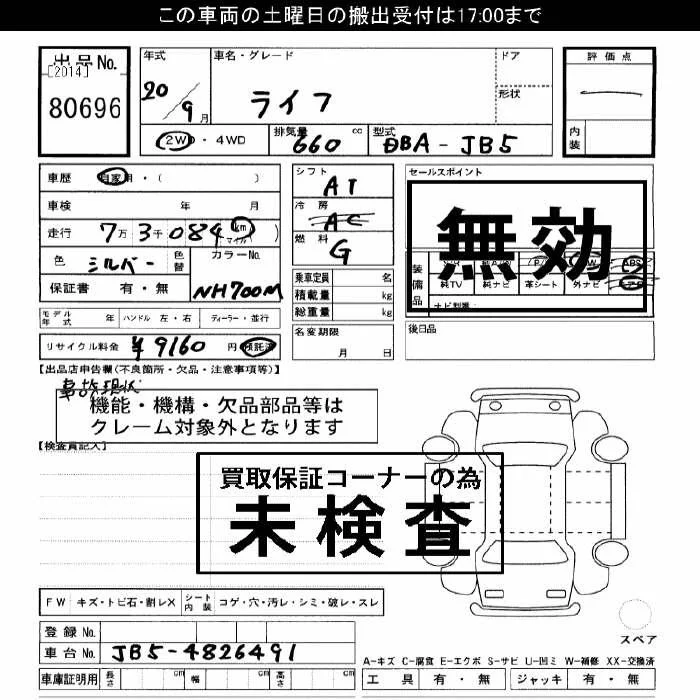 この車両の土曜日の搬出受付は17:00まで
出品No.
[2014]
80696
年式
20/9月
車名・グレード
ライフ
ドア
形状
評価点
内装
2WD・4WD
排気量 660 cc
型式 DBA-JB5
車歴 自家用・( )
車検 年 月
走行 7万3千084 km マイル
色 シルバー 色替
カラーNo. NH700M
保証書 有・無
シフト AT
冷房 AC
燃料 G
乗車定員 名
積載量 kg
総重量 kg
名変期限
月 日
セールスポイント
無効
装備品
純TV 純ナビ 革シート 外ナビ
ナビ型番:
後日品
モデル年式 年 ハンドル 左・右 ディーラー・並行
リサイクル料金 ¥9160 円 預託済
【出品店申告欄(不良箇所・欠品・注意事項等)】
事故現状
機能・機構・欠品部品等は
クレーム対象外となります
【検査員記入】
買取保証コーナーの為
未検査
FW キズ・トビ石・割レX
シート内装 コゲ・穴・汚レ・シミ・破レ・スレ
スペア
登録No.
車台No. JB5-4826491
車庫証明用 長さ cm 幅 cm 高さ cm
A-キズ C-腐食 E-エクボ S-サビ U-凹ミ W-補修 XX-交換済
工具 有・無 ジャッキ 有・無